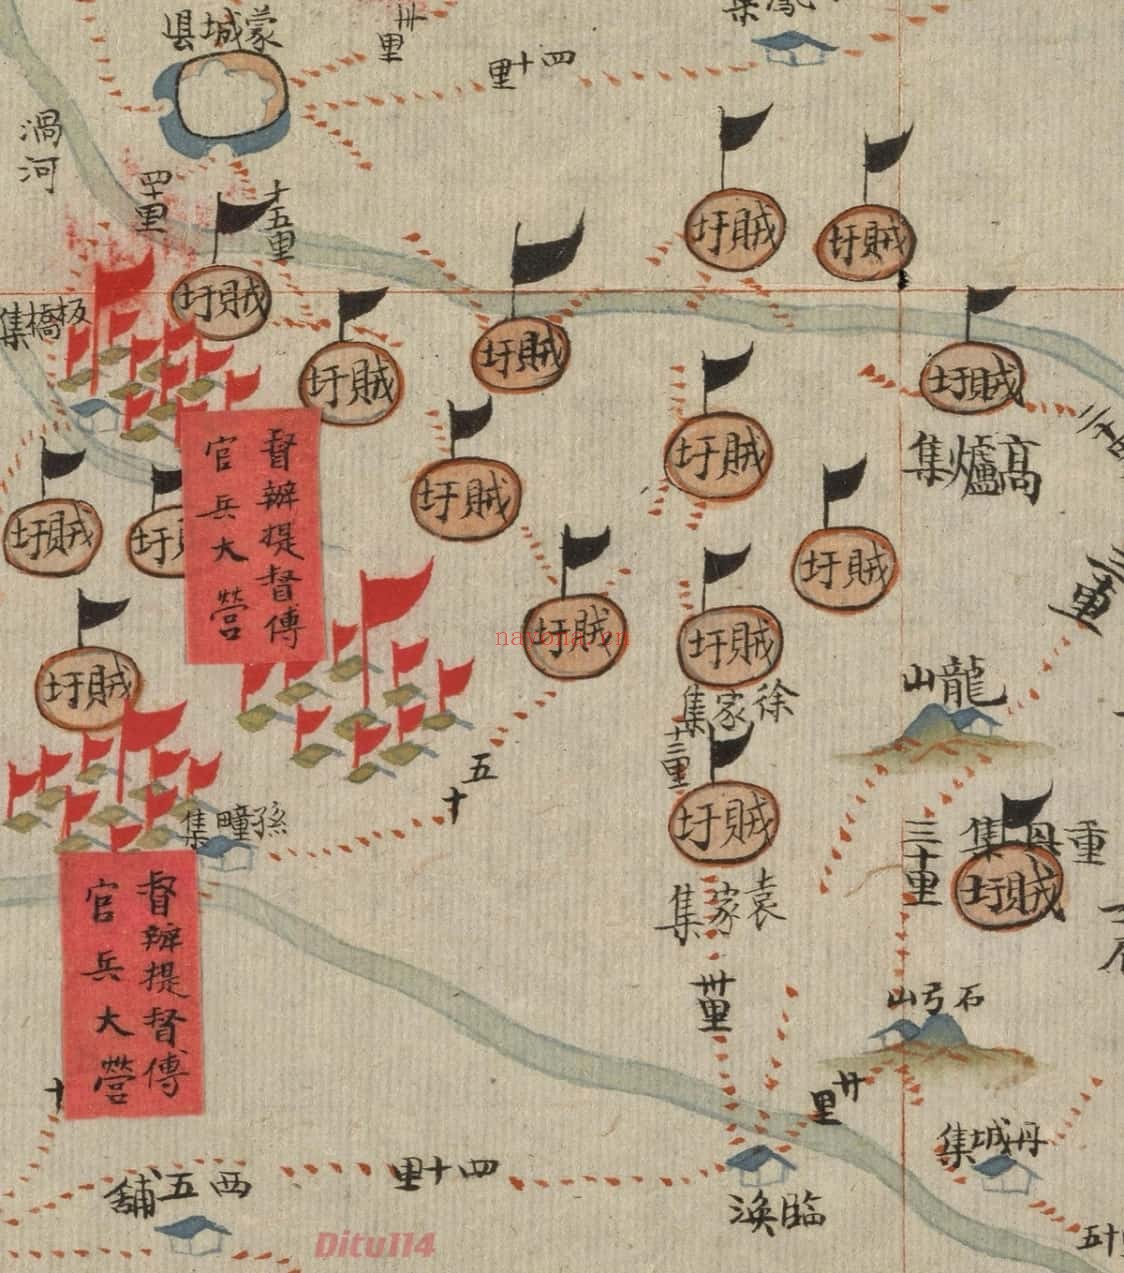 鳳集
蒙城县
卅里
四十里
渦河
四十里
十五里
賊圩
賊圩
賊圩
板橋集
賊圩
賊圩
賊圩
賊圩
高爐集
賊圩
賊圩
賊圩
賊圩
賊圩
督辦提督傅
官兵大營
賊圩
賊圩
賊圩
徐家集
十二里
賊圩
龍山
五十
孫疃集
賊圩
袁家集
卅里
三十里
重毋集
賊圩
督辦提督傅
官兵大營
石弓山
廿里
丹城集
十
四十里
西五舖
臨渙
五十
nayona.vn
Ditu114